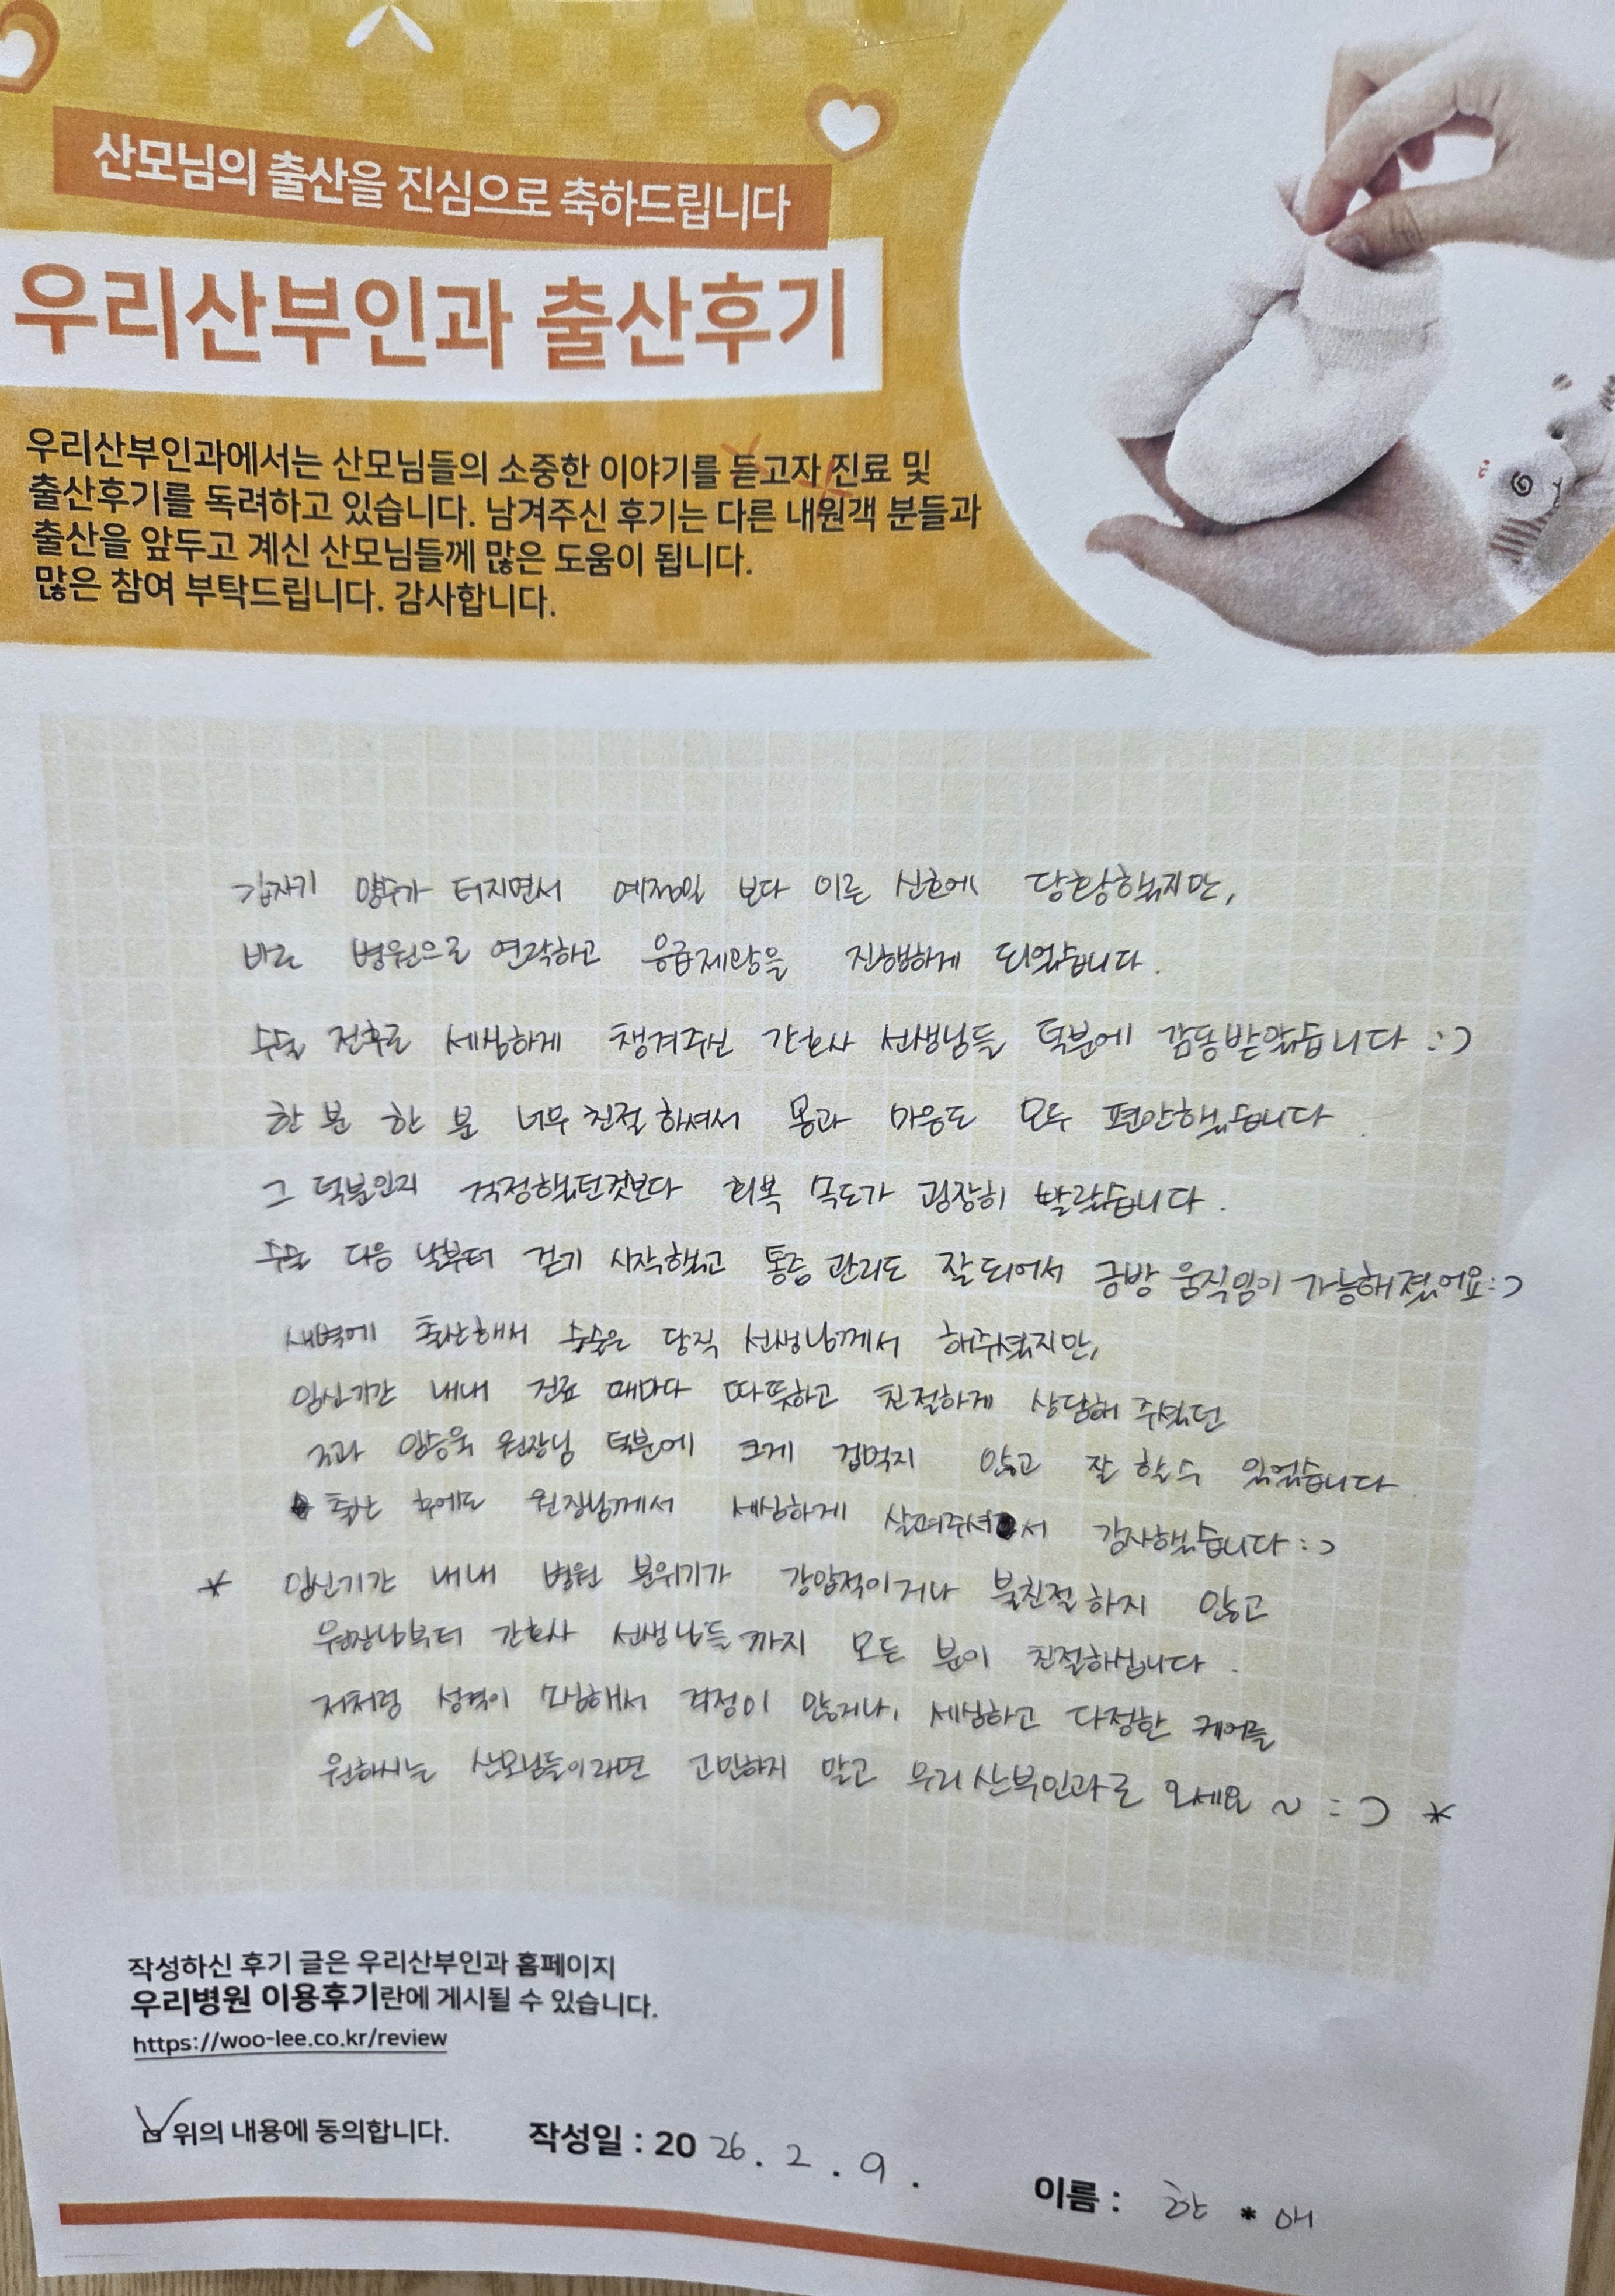 산모님의 출산을 진심으로 축하드립니다
우리산부인과 출산후기
우리산부인과에서는 산모님들의 소중한 이야기를 듣고자 진료 및
출산후기를 독려하고 있습니다. 남겨주신 후기는 다른 내원객 분들과
출산을 앞두고 계신 산모님들께 많은 도움이 됩니다.
많은 참여 부탁드립니다. 감사합니다.
갑자기 양수가 터지면서 예정일 보다 이른 신호에 당황했지만,
바로 병원으로 연락하고 응급제왕을 진행하게 되었습니다.
수술 전후로 세심하게 챙겨주신 간호사 선생님들 덕분에 감동받았습니다 :)
한 분 한 분 너무 친절하셔서 몸과 마음도 모두 편안했습니다
그 덕분인지 걱정했던것보다 회복 속도가 굉장히 빨랐습니다.
수술 다음 날부터 걷기 시작했고 통증 관리도 잘 되어서 금방 움직임이 가능해졌어요:)
새벽에 출산해서 수술은 당직 선생님께서 해주셨지만,
임신기간 내내 진료 때마다 따뜻하고 친절하게 상담해 주셨던
임승욱 원장님 덕분에 크게 겁먹지 않고 잘 할 수 있었습니다
출산 후에도 원장님께서 세심하게 살펴주셔서 감사했습니다 :)
* 임신기간 내내 병원 분위기가 강압적이거나 불친절하지 않고
원장님부터 간호사 선생님들까지 모든 분이 친절하십니다.
저처럼 성격이 소심해서 걱정이 많거나, 세심하고 다정한 케어를
원하시는 산모님들이라면 고민하지 말고 우리산부인과로 오세요 ~ :) *
작성하신 후기 글은 우리산부인과 홈페이지
우리병원 이용후기란에 게시될 수 있습니다.
https://woo-lee.co.kr/review
위의 내용에 동의합니다. 작성일 : 2026. 2. 9.
이름 : 한 * 애